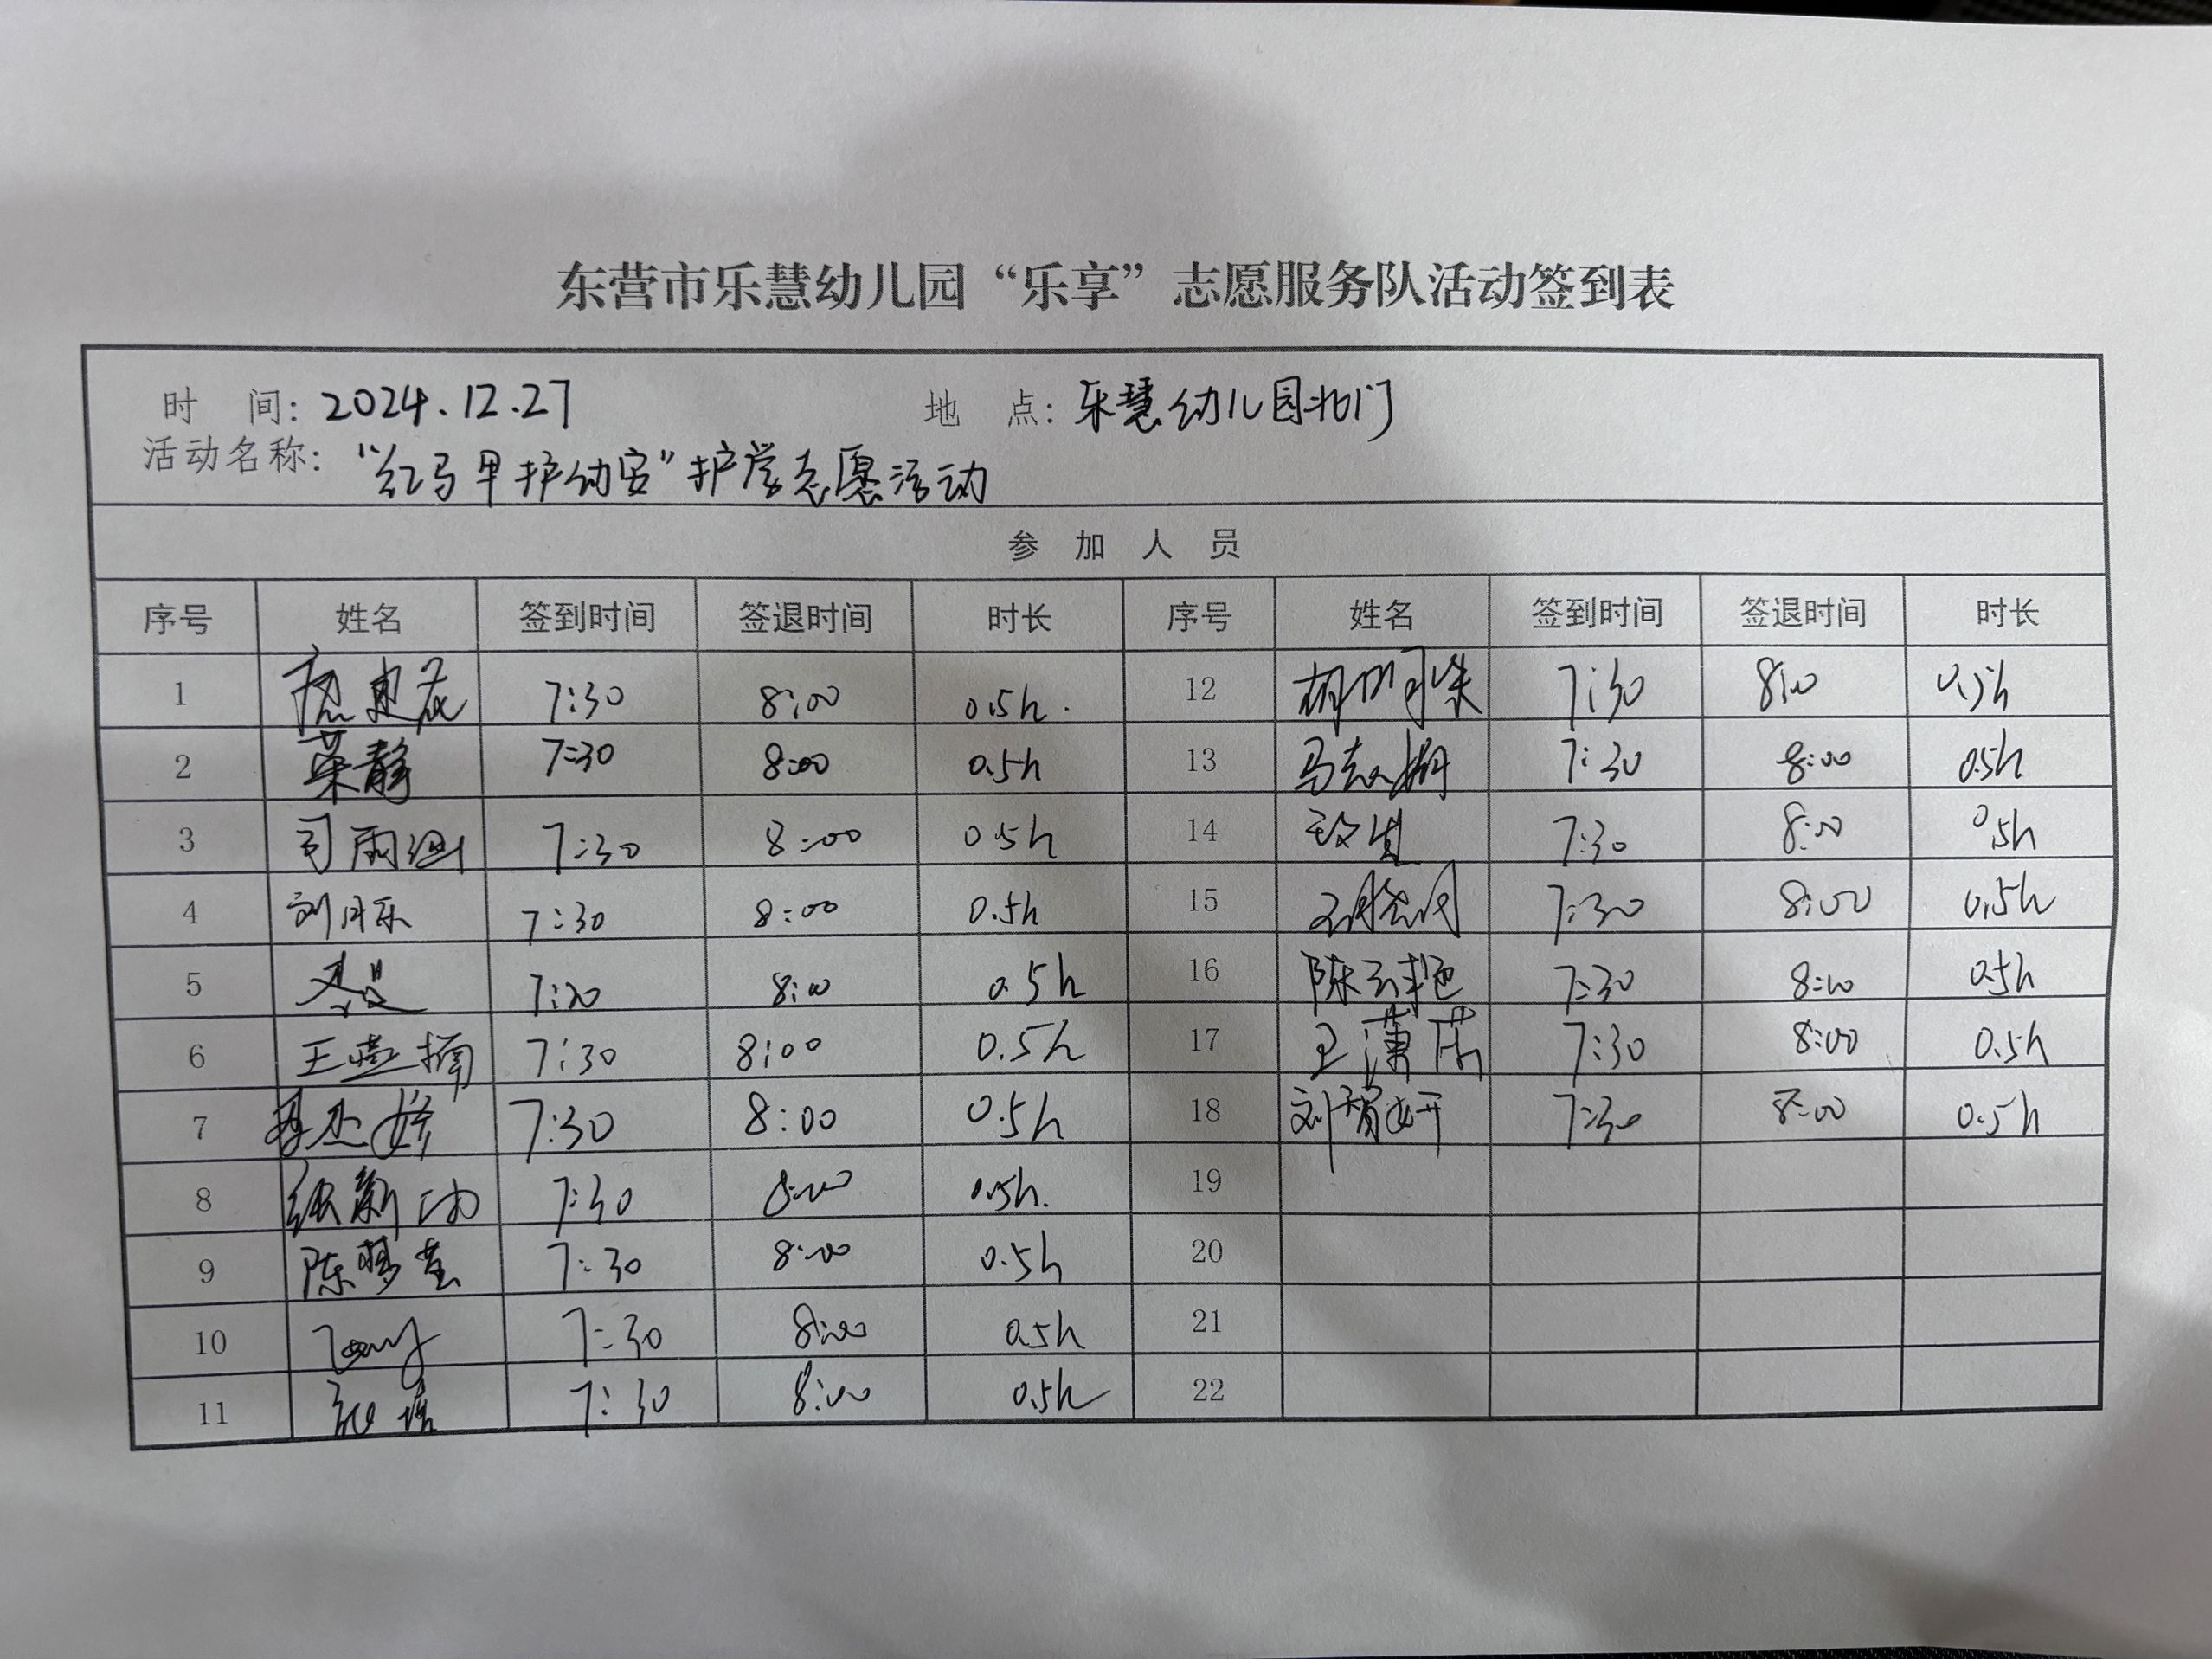 东营市乐慧幼儿园“乐享”志愿服务队活动签到表
时 间：2024.12.27 地 点：乐慧幼儿园北门
活动名称：“红马甲护幼安”护学志愿活动
参 加 人 员
序号 姓名 签到时间 签退时间 时长 序号 姓名 签到时间 签退时间 时长
1 7:30 8:00 0.5h. 12 胡明珠 7:30 8:00 0.5h
2 荣静 7:30 8:00 0.5h 13 7:30 8:00 0.5h
3 司雨 7:30 8:00 0.5h 14 7:30 8:00 0.5h
4 刘月乐 7:30 8:00 0.5h 15 7:30 8:00 0.5h
5 7:30 8:00 0.5h 16 陈 艳 7:30 8:00 0.5h
6 王 楠 7:30 8:00 0.5h 17 王 7:30 8:00 0.5h
7 7:30 8:00 0.5h 18 刘贺妍 7:30 8:00 0.5h
8 7:30 8:00 0.5h. 19
9 陈梦莹 7:30 8:00 0.5h 20
10 7:30 8:00 0.5h 21
11 7:30 8:00 0.5h 22